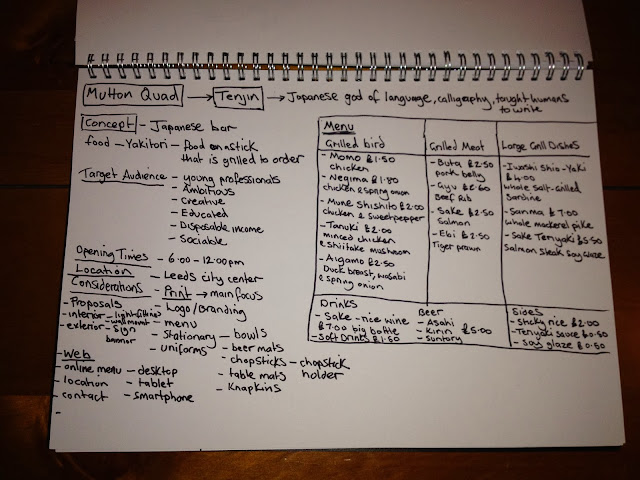 Mutton Quad → Tenjin → Japanese god of language, calligraphy, taught humans
to write
Concept - Japanese bar
food - Yakitori - food on a stick
that is grilled to order
Target Audience - young professionals
- Ambitious
- Creative
- Educated
- Disposable income
- Sociable
Opening Times - 6:00 - 12:00pm
Location - Leeds city center
Considerations - Print → main focus
- Proposals
- interior - light-fitting
- exterior - sign
- wall mount
banner
- Logo/Branding
- menu
- Stationary
- uniforms
- bowls
- beer mats
- chopsticks - chopstick
holder
- table mats
- Knapkins
- Web
- online menu - desktop
- location - tablet
- contact - smartphone
-
Menu
Grilled bird
- Momo £1.50
chicken
- Negima £1.80
chicken & spring onion
- Mune Shishito £2.00
chicken & sweet pepper
- Tanuki £2.00
minced chicken
& shiitake mushroom
- Aigamo £2.50
Duck breast, wasabi
& spring onion
Grilled Meat
- Buta £2.50
pork belly
- Gyu
Beef Rib
- Sake £2.50
Salmon
- Ebi £2.50
Tiger prawn
Large Grill Dishes
- Iwashi Shio-Yaki
£4.00
whole salt-grilled
Sardine
- Sanma £7.00
whole mackerel pike
- Sake Teriyaki £5.50
Salmon steak, soy glaze
Drinks
- Sake - rice wine
£7.00 big bottle
- Soft Drinks £1.50
Beer
- Asahi
- Kirin £5.00
- Suntory
Sides
- Sticky rice £2.00
- Teriyaki sauce £0.50
- Soy glaze £0.50